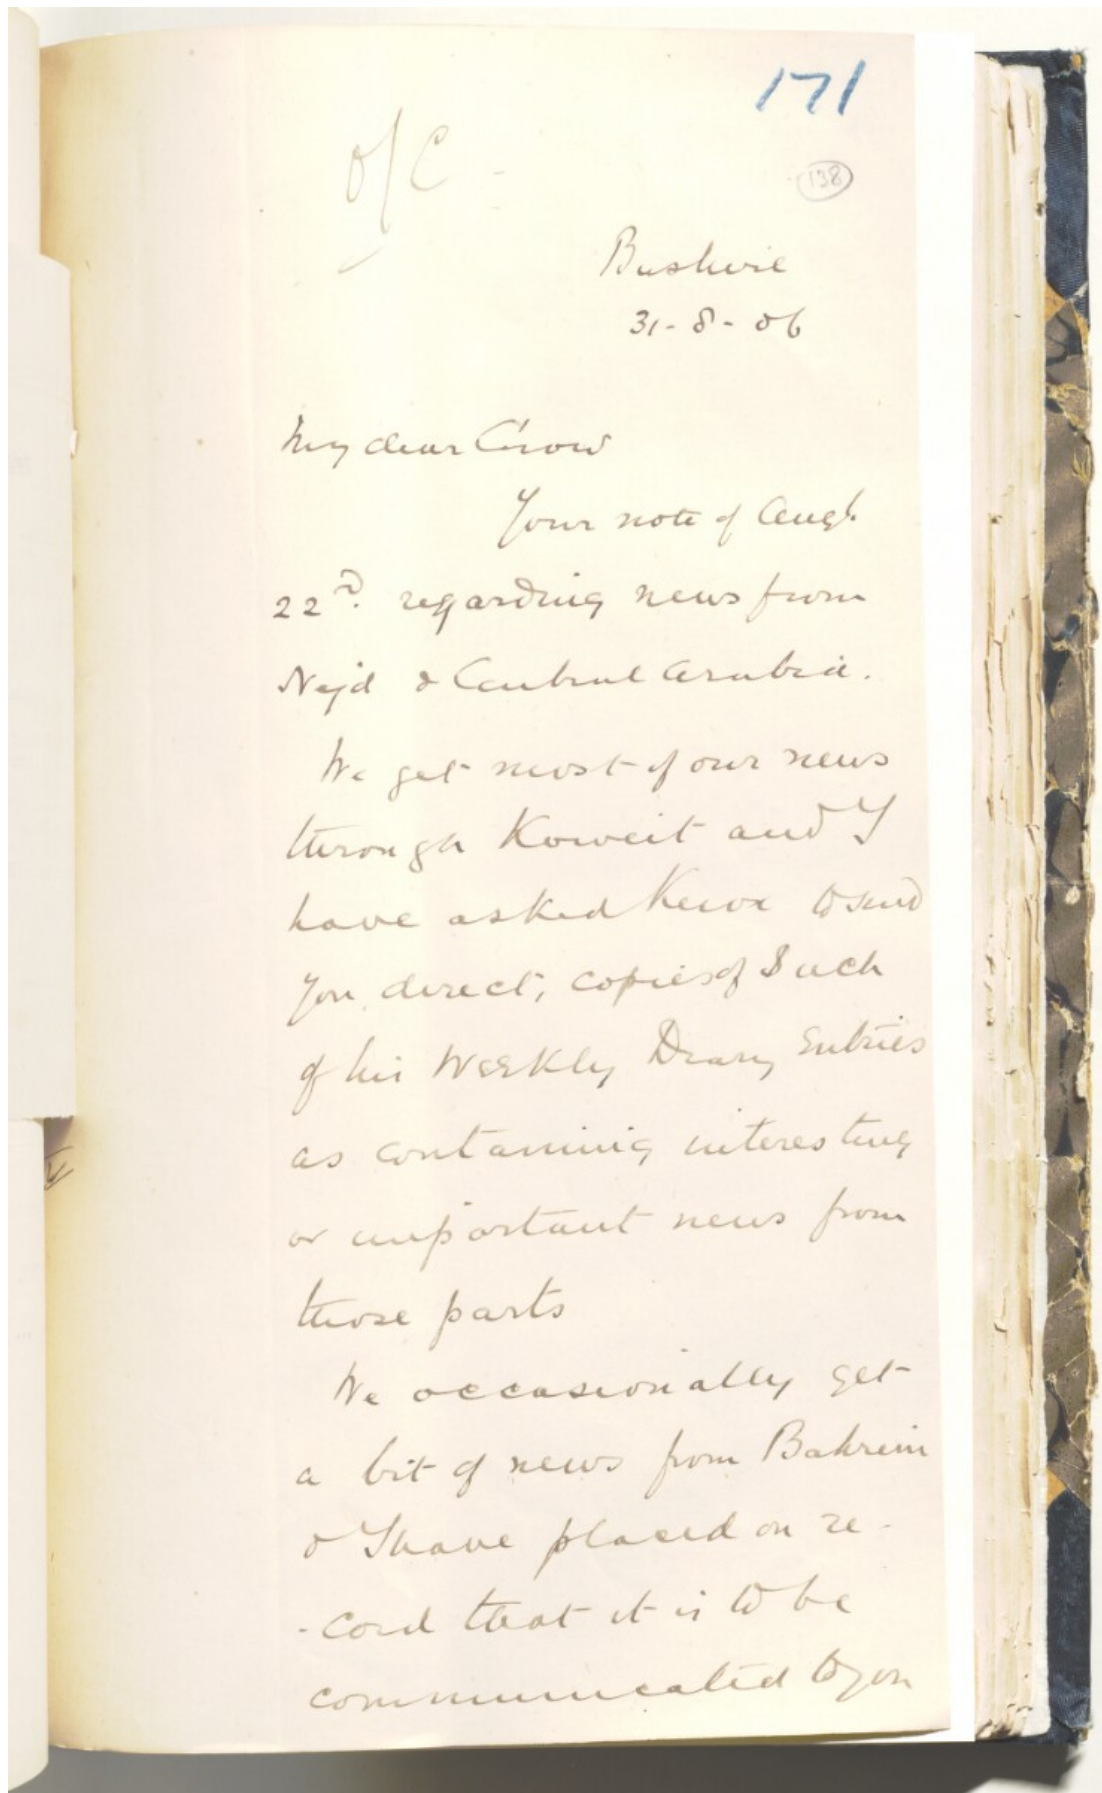 171
O/C
138
Bushire
31-8-06
My dear Crow
Your note of Augt.
22d. regarding news from
Nejd & Central Arabia.
We get most of our news
through Koweit and I
have asked Knox to send
you direct, copies of such
of his Weekly Diary Entries
as containing interesting
or important news from
those parts
We occasionally get
a bit of news from Bahrein
& I have placed on re-
-cord that it is to be
communicated to you